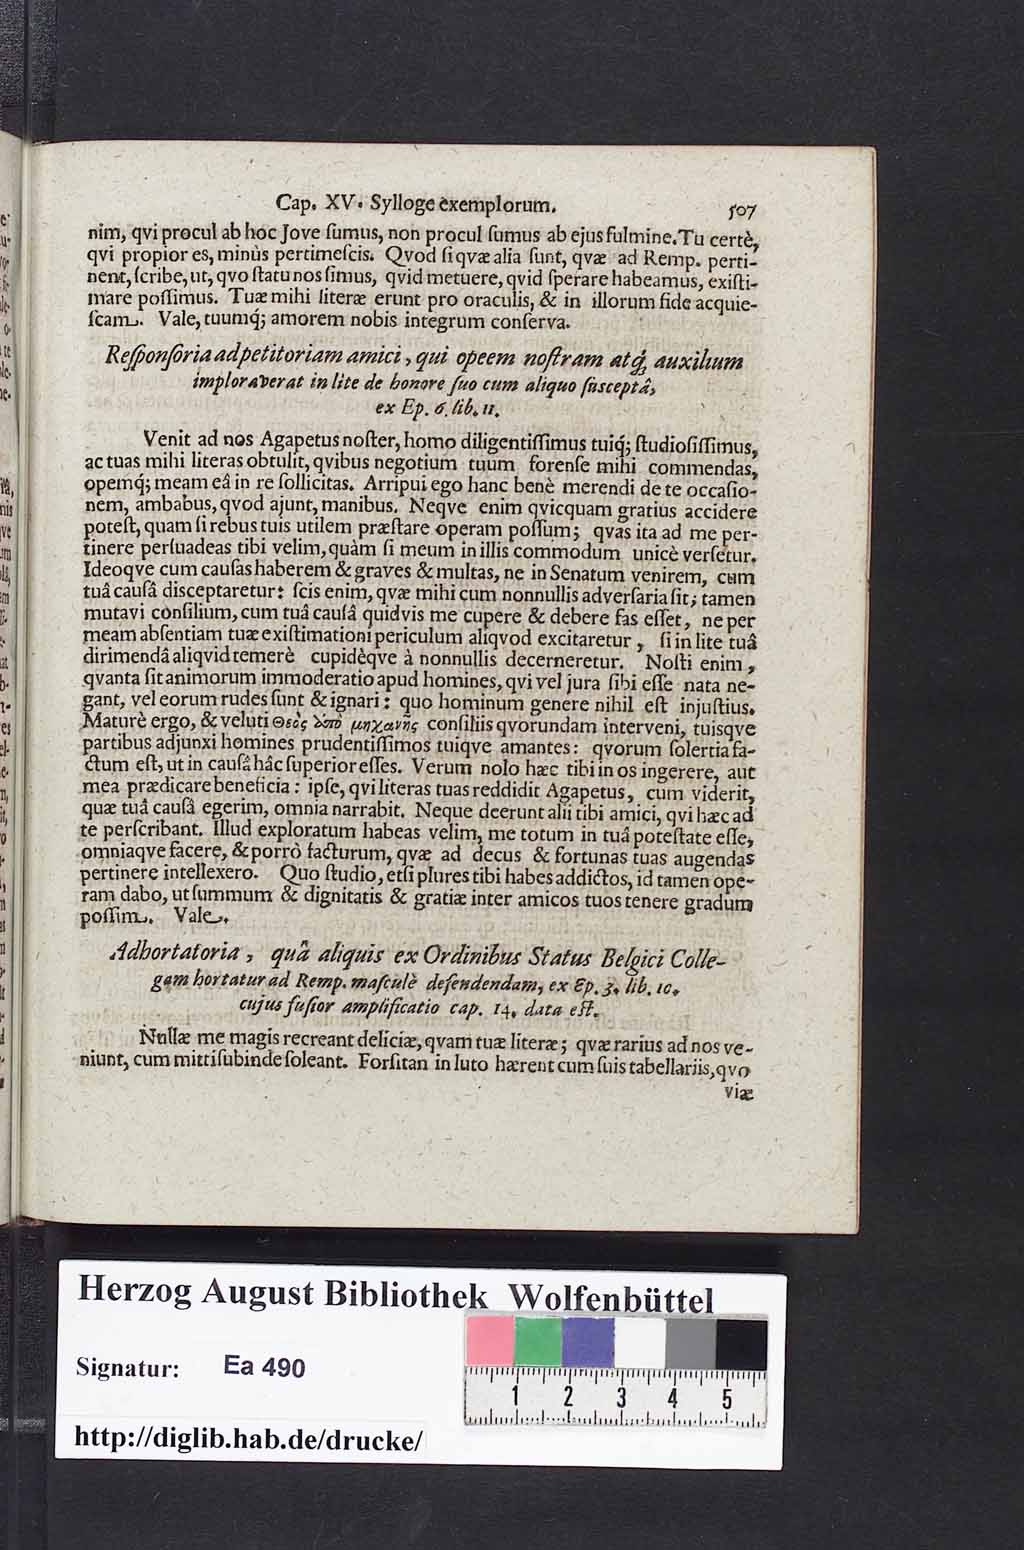 Cap. XV. Sylloge èxemplorum. 507
nim, qvi procul ab hoc Jove ſumus, non procul ſumus ab ejus fulmine. Tu certè,
qvi propior es, minùs pertimeſcis. Qvod ſi qvæ alia ſunt, qvæ ad Remp. perti-
nent, ſcribe, ut, qvo ſtatu nos ſimus, qvid metuere, qvid ſperare habeamus, exiſti-
mare poſſimus. Tuæ mihi literæ erunt pro oraculis, & in illorum fide acquie-
ſcam. Vale, tuumq́; amorem nobis integrum conſerva.
Reſponſoria ad petitoriam amici, qui opeem noſtram atq́; auxilium
imploraverat in lite de honore ſuo cum aliquo ſuſceptâ,
ex Ep. 6. lib. 11.
Venit ad nos Agapetus noſter, homo diligentiſſimus tuiq́; ſtudioſiſſimus,
ac tuas mihi literas obtulit, qvibus negotium tuum forenſe mihi commendas,
opemq́; meam eâ in re ſollicitas. Arripui ego hanc benè merendi de te occaſio-
nem, ambabus, qvod ajunt, manibus. Neqve enim qvicquam gratius accidere
poteſt, quam ſi rebus tuis utilem præſtare operam poſſum; qvas ita ad me per-
tinere perſuadeas tibi velim, quàm ſi meum in illis commodum unicè verſetur.
Ideoqve cum cauſas haberem & graves & multas, ne in Senatum venirem, cum
tuâ cauſâ disceptaretur: ſcis enim, qvæ mihi cum nonnullis adverſaria ſit; tamen
mutavi conſilium, cum tuâ cauſâ quidvis me cupere & debere fas eſſet, ne per
meam abſentiam tuæ exiſtimationi periculum aliqvod excitaretur, ſi in lite tuâ
dirimendâ aliqvid temerè cupidèqve à nonnullis decerneretur. Noſti enim,
qvanta ſit animorum immoderatio apud homines, qvi vel jura ſibi eſſe nata ne-
gant, vel eorum rudes ſunt & ignari: quo hominum genere nihil eſt injuſtius.
Maturè ergo, & veluti Θεὸς ἀπὸ μηχανῆς conſiliis qvorundam interveni, tuisqve
partibus adjunxi homines prudentiſſimos tuiqve amantes: qvorum ſolertia fa-
ctum eſt, ut in cauſâ hâc ſuperior eſſes. Verum nolo hæc tibi in os ingerere, aut
mea prædicare beneficia: ipſe, qvi literas tuas reddidit Agapetus, cum viderit,
quæ tuâ cauſâ egerim, omnia narrabit. Neque deerunt alii tibi amici, qvi hæc ad
te perſcribant. Illud exploratum habeas velim, me totum in tuâ poteſtate eſſe,
omniaqve facere, & porrò facturum, qvæ ad decus & fortunas tuas augendas
pertinere intellexero. Quo ſtudio, etſi plures tibi habes addictos, id tamen ope-
ram dabo, ut ſummum & dignitatis & gratiæ inter amicos tuos tenere gradum
poſſim. Vale.
Adhortatoria, quâ aliquis ex Ordinibus Status Belgici Colle-
gam hortatur ad Remp. maſculè defendendam, ex Ep. 3. lib. 10.
cujus fuſior amplificatio cap. 14. data eſt.
Nullæ me magis recreant deliciæ, qvam tuæ literæ; qvæ rarius ad nos ve-
niunt, cum mitti ſubinde ſoleant. Forſitan in luto hærent cum ſuis tabellariis, qvo
viæ
Herzog August Bibliothek Wolfenbüttel
Signatur: Ea 490
1 2 3 4 5
http://diglib.hab.de/drucke/